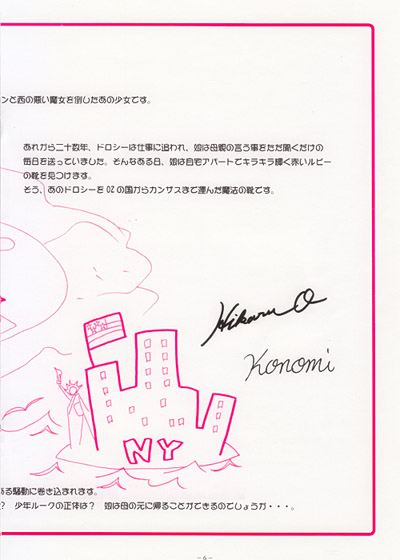 ンと西の悪い魔女を倒したあの少女です。
あれから二十数年、ドロシーは仕事に追われ、娘は母親の言う事をただ聞くだけの
毎日を送っていました。そんなある日、娘は自宅アパートでキラキラ輝く赤いルビー
の靴を見つけます。
そう、あのドロシーをOZの国からカンザスまで運んだ魔法の靴です。
Hikaru O
Konomi
NY
ある騒動に巻き込まれます。
? 少年ルークの正体は? 娘は母の元に帰ることができるのでしょうか・・・。
－6－